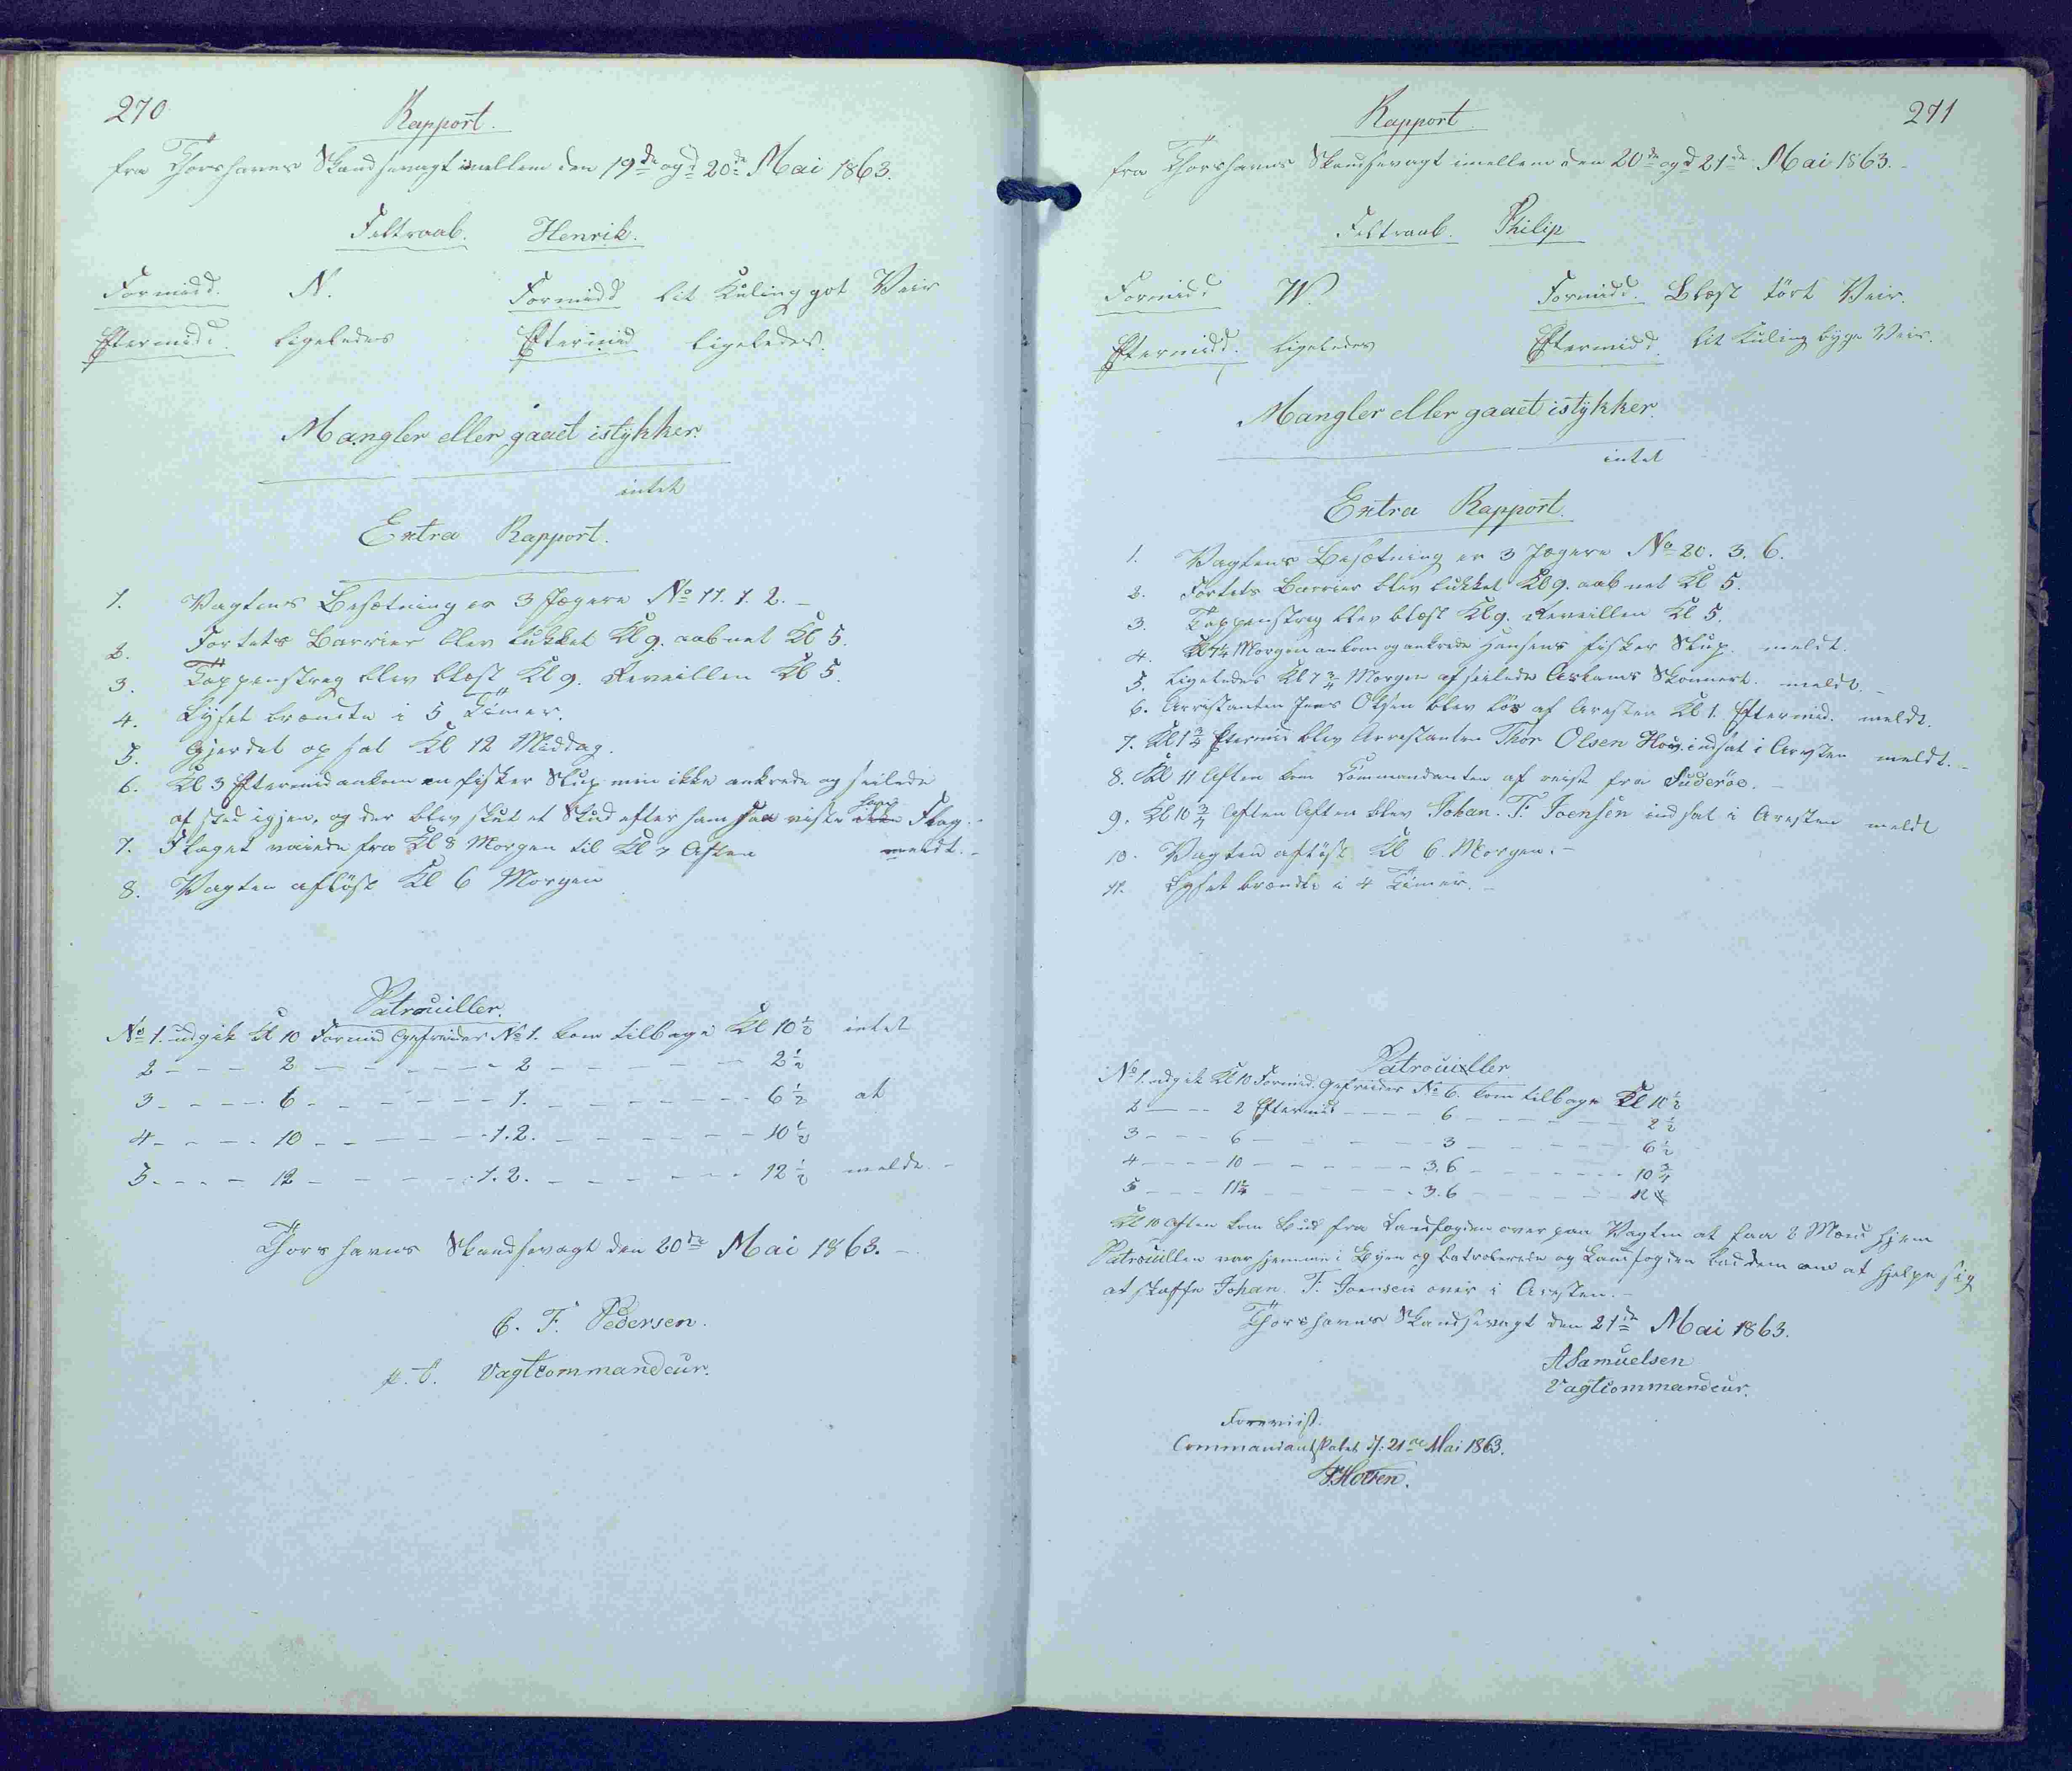 270
Rapport.
fra Thorshavns Skandsevagt imellem den 19de og d: 20de Mai 1863.
Feltraab. Henrik.
Formidd. N. Formidd lit Kuling got Veir
Eftermidd. ligeledes Eftermid ligeledes.
Mangler eller gaaet istÿkker.
intet
Extra Rapport.
1. Vagtens Besætning er 3 Jægere No 11. 1. 2. –
2. Fortets Barrier blev lukket Kl 9. aabnet Kl 5.
3. Tappenstreg blev blæst Kl 9. Reveillen Kl 5.
4. Lyset brændte i 5 Timer.
5. Gjerdet op sat Kl 12 Middag.
6. Kl 3 Eftermid ankom en fisker Slup men ikke ankrede og seilede
af sted igjen, og der blev skut et Skud efter ham saa viste Flag. –
meldt. –
7. Flaget vaiede fra Kl 8 Morgen til Kl 7 Aften
8. Vagten afløst Kl 6 Morgen
Patrouiller.
No 1. udgik Kl 10 Formid Gefreider No 1. kom tilbage Kl 10½ intet
2 - - - 2 - - - - - 2 - - - - - 2½
3 - - - - 6 - - - - - 1. - - - - - 6½ at
4 - - - - 10 - - - - - 1.2. - - - - - 10½
5 - - - - 12 - - - - - 1.2. - - - - - 12½ melde. –
Thorshavns Skandsevagt den 20de Mai 1863. –
C. F. Pedersen.
p.t. Vagtcommandeur.
271
Rapport
fra Thorshavns Skandsevagt imellem den 20de og d 21de Mai 1863. –
Feltraab. Philip
Formidd W. Formidd. Blæst tørt Veir.
Eftermidd. ligeledes Eftermidd. lit Kuling byge Veir.
Mangler eller gaaet istÿkker.
intet
Extra Rapport.
1. Vagtens Besætning er 3 Jægere No 20. 3. 6.
2. Fortets Barrier blev lukket Kl 9. aabnet Kl 5.
3. Tappenstreg blev blæst Kl 9. Reveillen Kl 5.
4. Kl 7¼ Morgen ankom og ankrede Hansens fisker Slup. meldt.
5. Ligeledes Kl 7¾ Morgen afseilede Skonnert. meldt. –
6. Arristanten Jens Olsen blev løs af Aresten Kl 1. Eftermid. meldt.
7. Kl 1¾ Eftermid blev Arrestanten Thor Olsen Hov. indsat i Aresten meldt. –
8. Kl 11 Aften kom Commandanten af reise fra Suderöe. –
9. Kl 10¾ Aften Aften blev Johan. F. Joensen indsat i Aresten meldt
10. Vagten afløst Kl 6 Morgen. –
11. Lyset brændte i 4 Timer. –
Patrouiller
No 1. udgik Kl 10 Formid. Gefreider No 6. kom tilbage Kl 10½
2 - - - 2 Eftermid - - - - 6 - - - - - 2½
3 - - - 6 - - - - - 3 - - - - - 6½
4 - - - - 10 - - - - - 3.6 - - - - - 10¾
5 - - - 11¼ - - - - - 3.6 - - - - - 12
Kl 10 Aften kom Bud fra Landfogden over paa Vagten at faa 2 Mand hjem
Patrouillen var hjemme i Byen og og Landfogden bad dem om at hjelpe sig
at skaffe Johan. F. Joensen over i Aresten. –
Thorshavns Skandsevagt den 21de Mai 1863.
ASamuelsen
Vagtcommandeur.
Foreviist.
Commandantskabet d: 21de Mai 1863.
Holten.